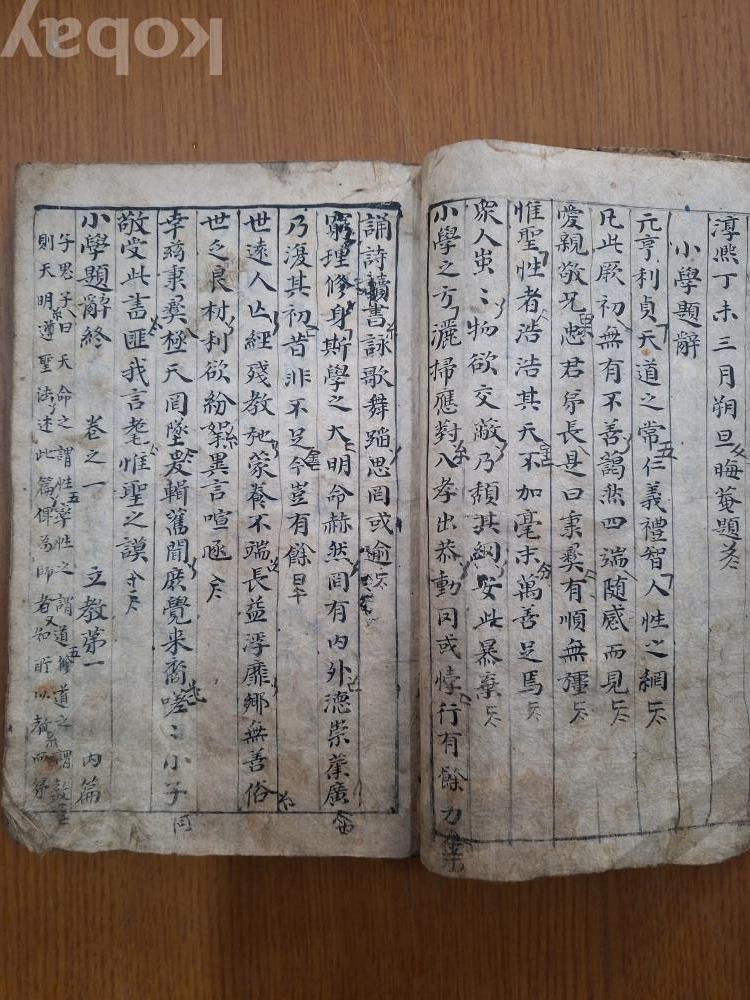 kobay
淳熙丁未三月朔旦晦菴題
小學題辭
元亨利貞天道之常仁義禮智人性之綱
凡此厥初無有不善藹然四端隨感而見
愛親敬兄忠君弟長是曰秉彝有順無彊
惟聖性者浩浩其天不加毫末萬善足焉
衆人蚩〻物欲交蔽乃頹其綱安此暴棄
小學之方灑掃應對入孝出恭動罔或悖行有餘力
誦詩讀書詠歌舞蹈思罔或逾
窮理修身斯學之大明命赫然罔有內外德崇業廣
乃復其初昔非不足今豈有餘
世遠人亡經殘教弛蒙養不端長益浮靡鄉無善俗
世乏良材利欲紛挐異言喧豗
幸茲秉彝極天罔墜爰輯舊聞庶覺來裔嗟〻小子
敬受此書匪我言耄惟聖之謨
小學題辭終 卷之一 立教第一 內篇
子思子曰天命之謂性率性之謂道修道之謂教
則天明遵聖法述此篇俾為師者知所以教而弟